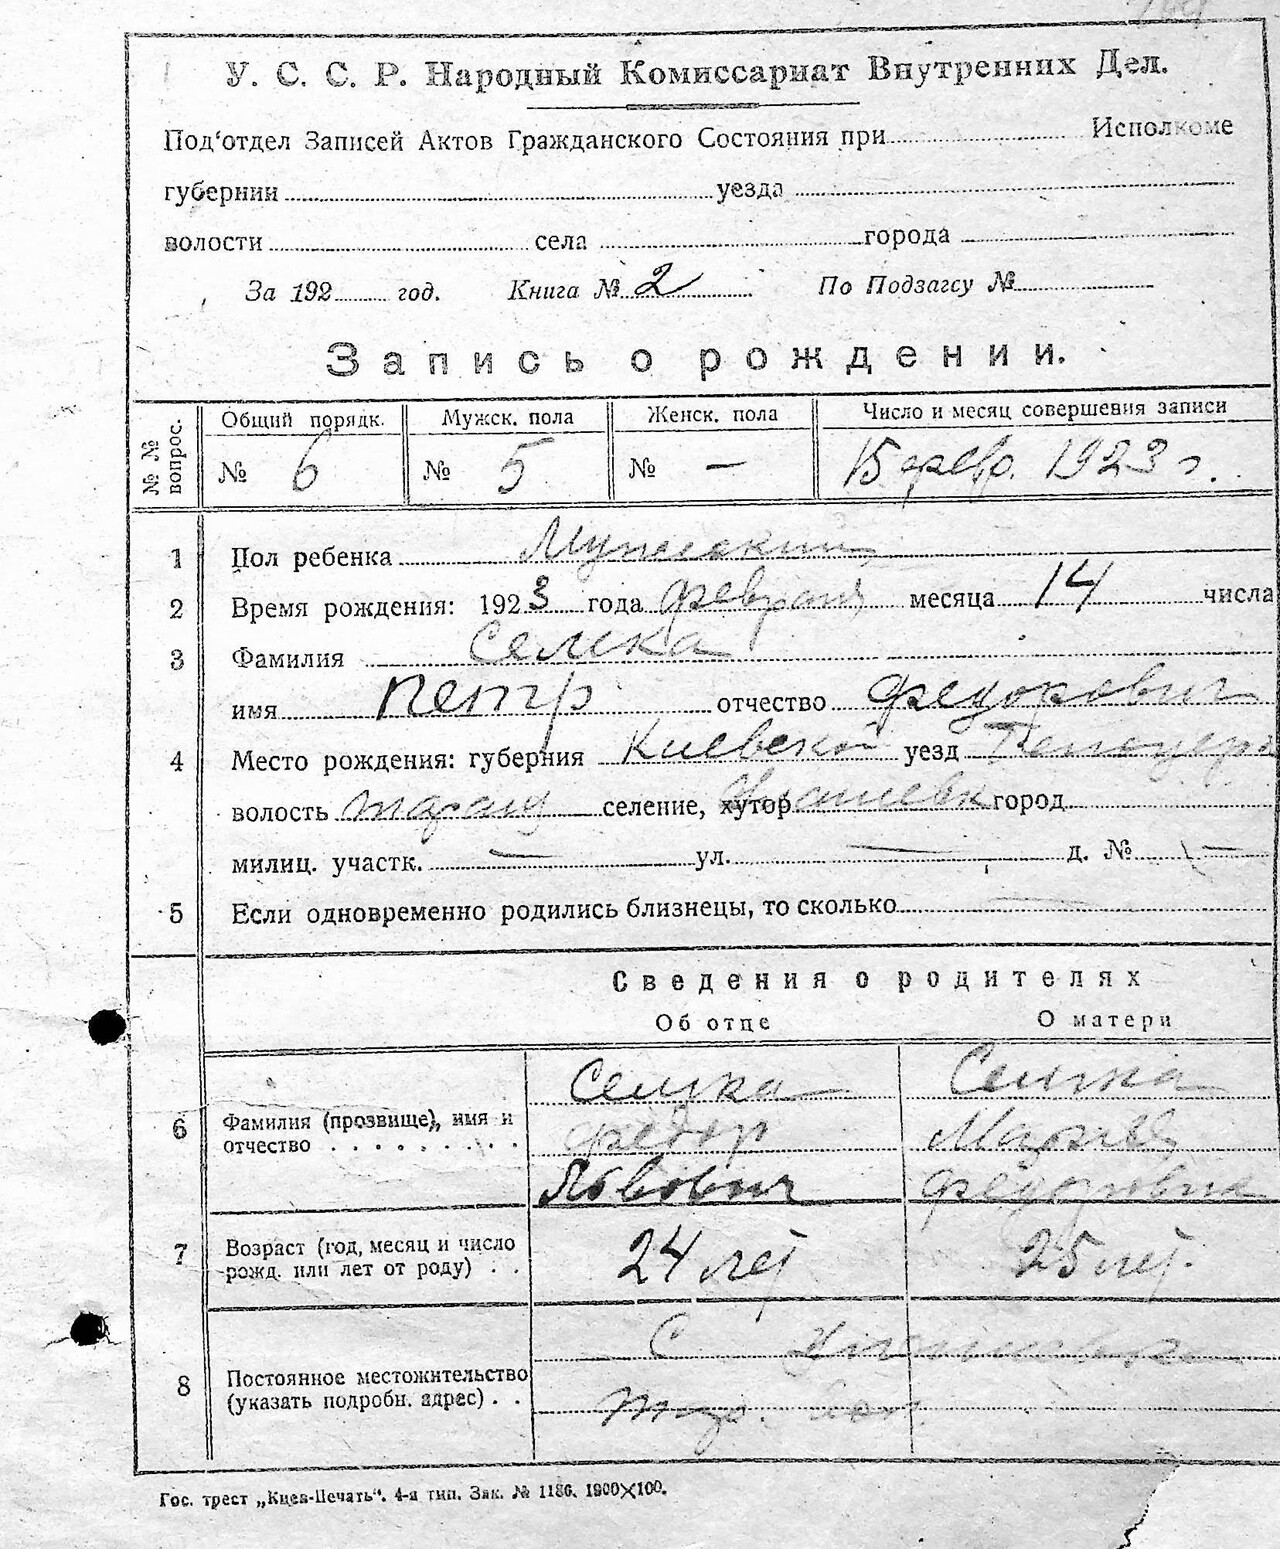 У. С. С. Р. Народный Комиссариат Внутренних Дел.
Под'отдел Записей Актов Гражданского Состояния при Исполкоме
губернии уезда
волости села города
За 192 год. Книга № 2 По Подзагсу №
Запись о рождении.
№ № вопрос. Общий порядк. Мужск. пола Женск. пола Число и месяц совершения записи
№ 6 № 5 № — 15 февр. 1923 г.
1 Пол ребенка Мужской
2 Время рождения: 1923 года февраля месяца 14 числа
3 Фамилия
имя Петр отчество Федорович
4 Место рождения: губерния Киевской уезд Белоцерк
волость селение, хутор город
милиц. участк. — ул. — д. № —
5 Если одновременно родились близнецы, то сколько
Сведения о родителях
Об отце О матери
6 Фамилия (прозвище), имя и отчество
Федор
Львович
7 Возраст (год, месяц и число рожд. или лет от роду) 24 лет 25 лет.
8 Постоянное местожительство (указать подробн. адрес) С
Гос. трест „Киев-Печать". 4-я тип. Зак. № 1186. 1900×100.